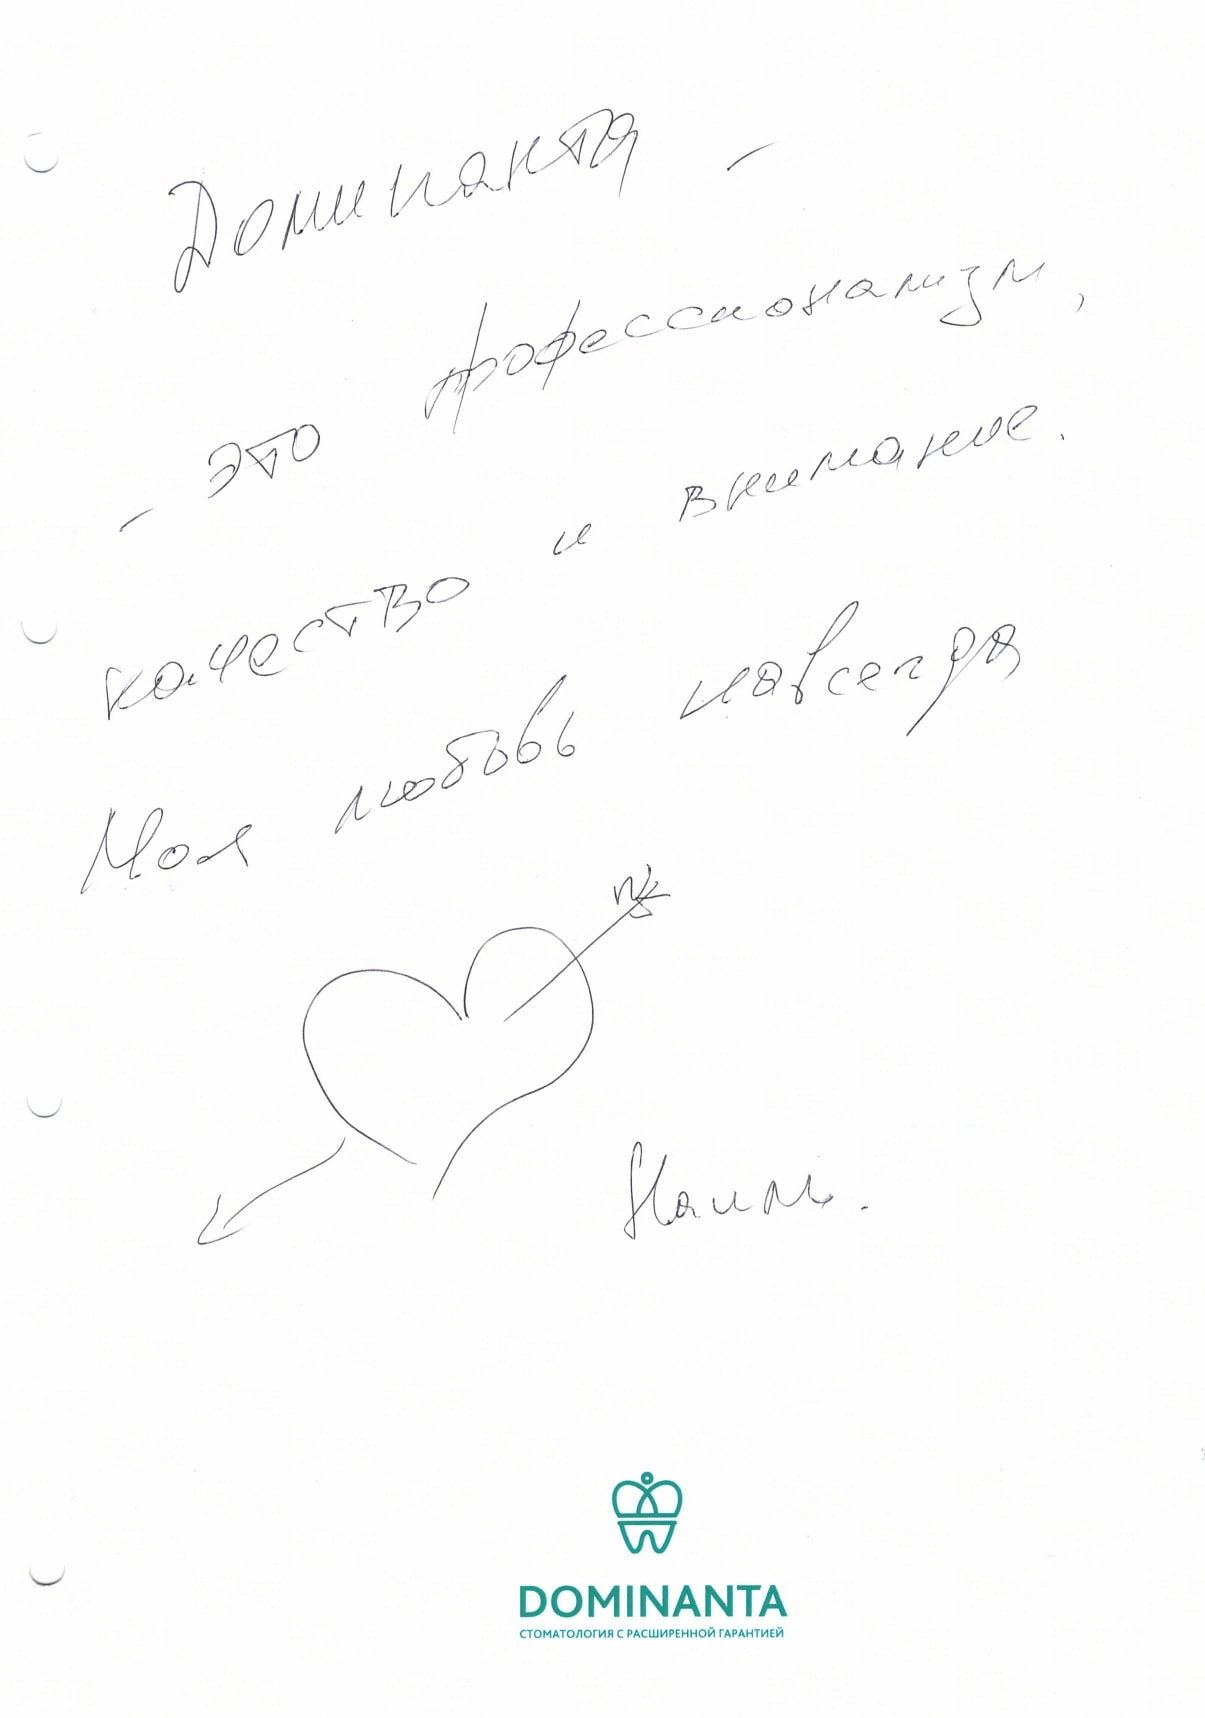 Доминанта -
- это профессионализм,
качество и внимание.
Моя любовь навсегда
Наиль.
DOMINANTA
СТОМАТОЛОГИЯ С РАСШИРЕННОЙ ГАРАНТИЕЙ